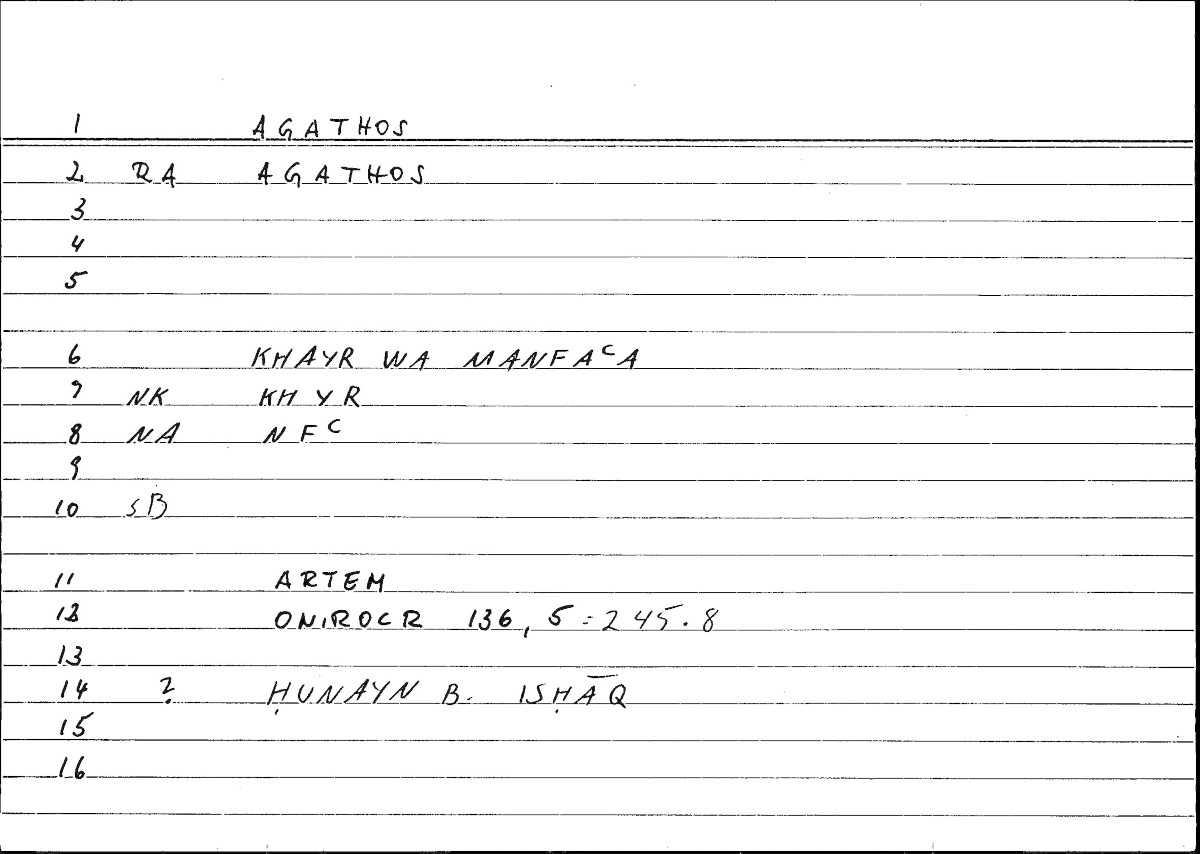 1 AGATHOS
2 RA AGATHOS
3
4
5
6 KHAYR WA MANFAᶜA
7 NK KHYR
8 NA NFᶜ
9
10 SB
11 ARTEM
12 ONIROCR 136,5 = 245.8
13
14 ? ḤUNAYN B. ISḤĀQ
15
16